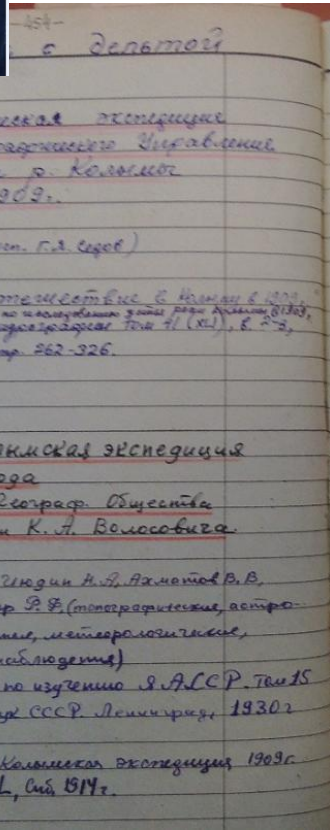 -454-
с дельтой
еская экспедиция
рафического Управления
р. Колымы
909г.
сп. Г.Я. Седов)
тешествие в Колыму в 1909,
по исследованию устья реки Колымы, в 1909,
идрографии Том 41 (XLI), в. 2-3,
тр. 262-326.
ымская экспедиция
ода
Географ. Общества
и К. А. Волосовича.
Июдин Н.А., Ахматов В.В,
ер Р.Ф. (топографические, астро-
метеорологические,
наблюдения)
по изучению ЯАССР. Том 15
ук СССР. Ленинград, 1930г
Колымская экспедиция 1909г.
Спб, 1914г.